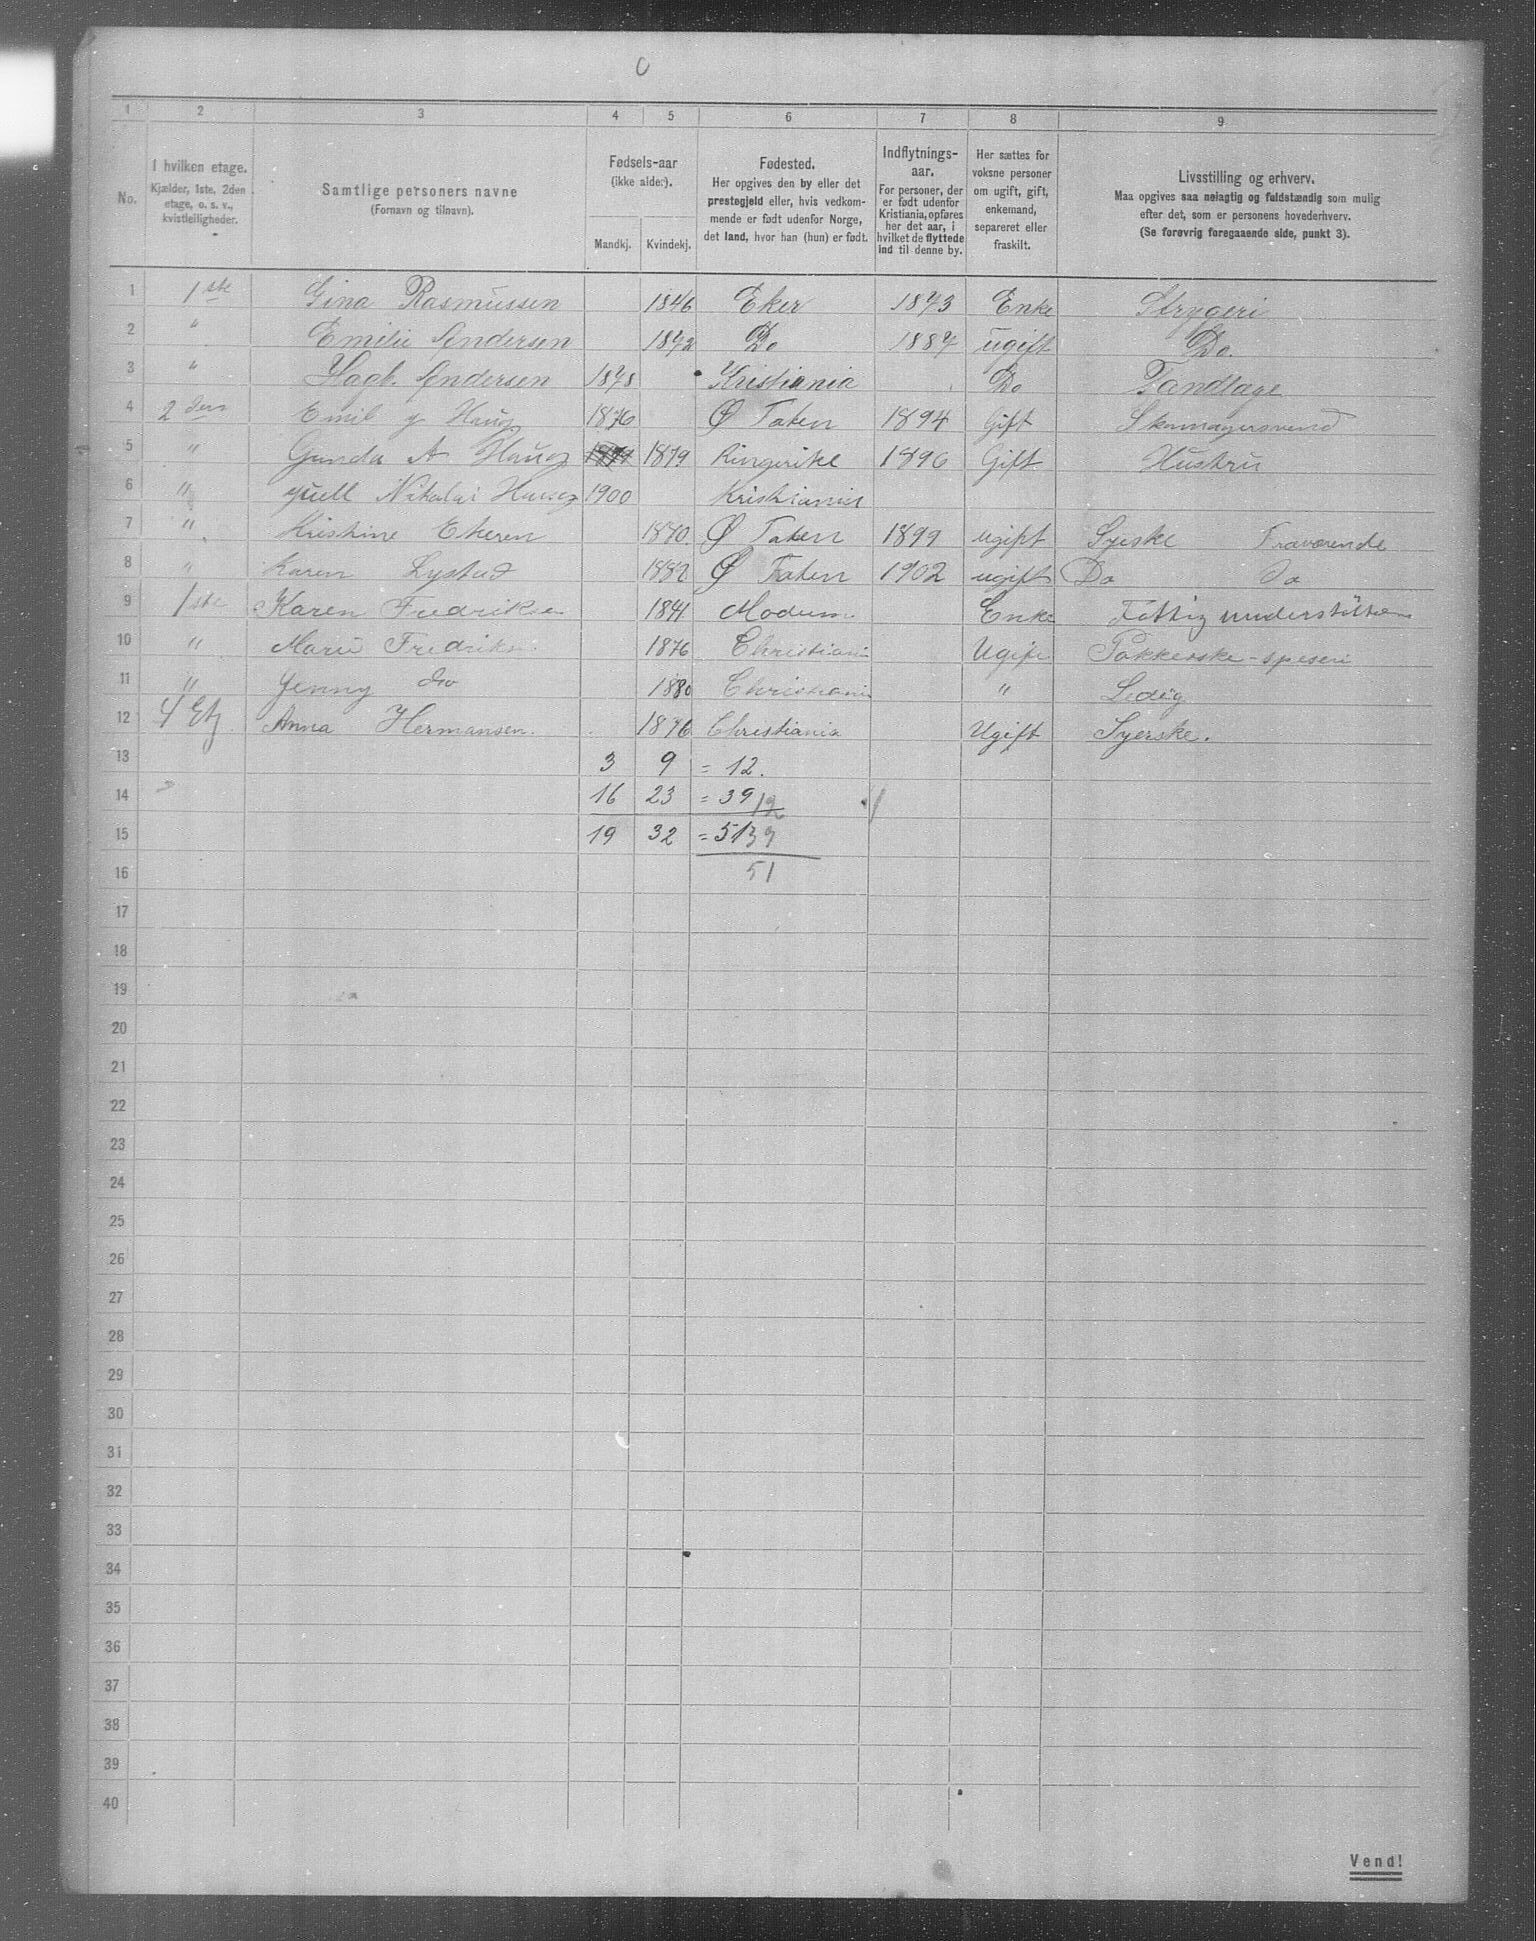 1 2 3 4 5 6 7 8 9
No.
I hvilken etage.
Kjælder, 1ste, 2den
etage, o. s. v.,
kvistleiligheder.
Samtlige personers navne
(Fornavn og tilnavn).
Fødsels-aar
(ikke alder).
Mandkj. Kvindekj.
Fødested.
Her opgives den by eller det
prestegjeld eller, hvis vedkom-
mende er født udenfor Norge,
det land, hvor han (hun) er født.
Indflytnings-
aar.
For personer, der
er født udenfor
Kristiania, opføres
her det aar, i
hvilket de flyttede
ind til denne by.
Her sættes for
voksne personer
om ugift, gift,
enkemand,
separeret eller
fraskilt.
Livsstilling og erhverv.
Maa opgives saa nøiagtig og fuldstændig som mulig
efter det, som er personens hovederhverv.
(Se forøvrig foregaaende side, punkt 3).
1 1ste Gina Rasmussen 1846 Eker 1873 Enke Strygeri
2 " Emilie Andersen 1872 Do 1887 ugift Do.
3 " Hagb. Andersen 1878 Kristiania Do Tandlæge
4 2den Emil Haug 1876 Ø Toten 1894 Gift Skomagersvend
5 " Gunda A Haug 1879 Ringerike 1896 Gift Hustru
6 " Nikolai Haug 1900 Kristiania
7 " Kristine Ekeren 1880. Ø Toten 1899 ugift Syeske Fraværende
8 " Karen Lystad 1882 Ø Toten 1902 ugift Do Do
9 1ste Karen Fredriksen 1841 Modum Enke Fattig understøttes
10 " Marie Fredriks. 1876 Christiani Ugift Pakkerske-
11 " Jenny do 1880 Christiani " Ledig
12 4 Etg Anna Hermansen. 1876 Christiania Ugift Syerske.
13 3 9 = 12.
14 16 23 = 39 12
15 19 32 = 51 39
16 51
17
18
19
20
21
22
23
24
25
26
27
28
29
30
31
32
33
34
35
36
37
38
39
40
Vend!